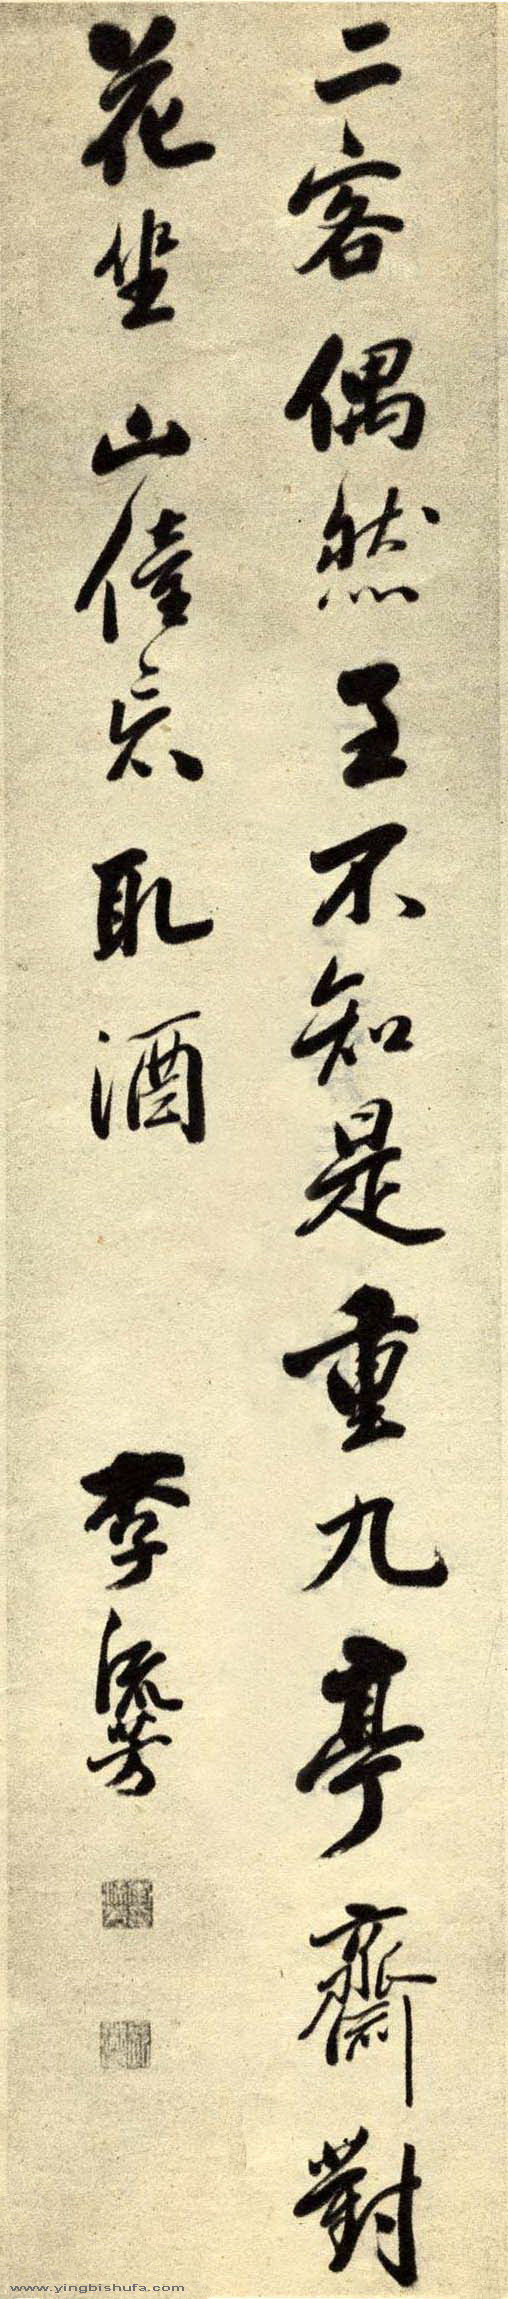 二客偶然至不知是重九亭齋對
花坐山僮忘取酒
李流芳
www.yingbishufa.com